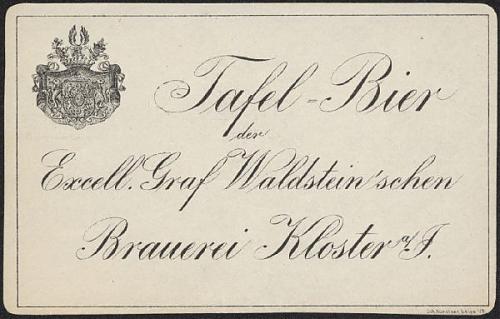 Tafel-Bier
der
Excell. Graf Waldstein'schen
Brauerei Kloster a/J.